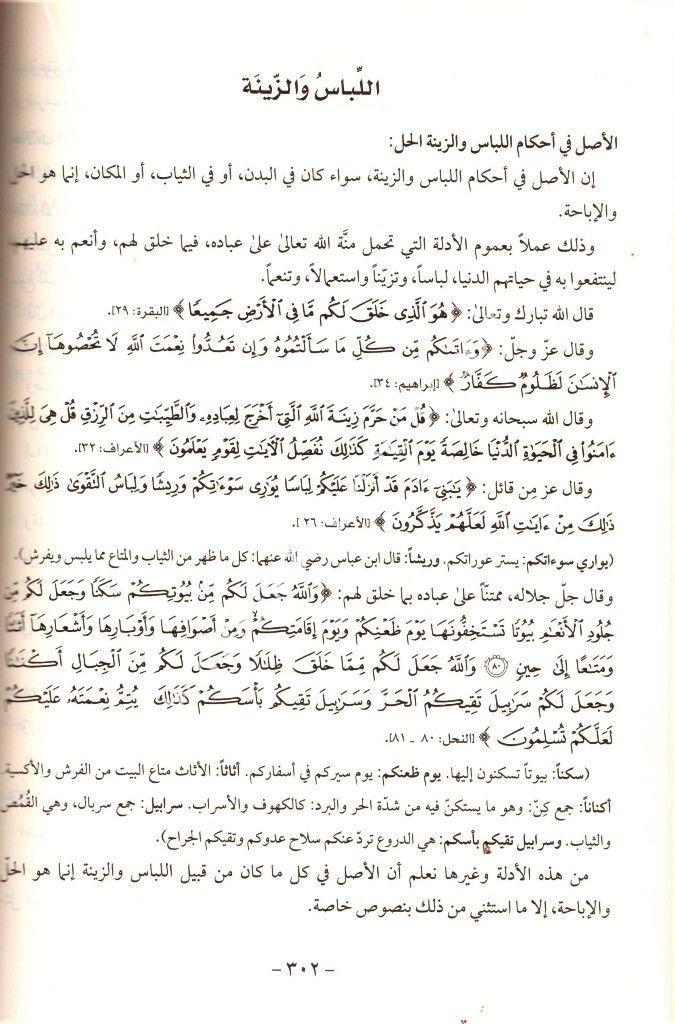 اللِّباسُ وَالزّينَة
الأصل في أحكام اللباس والزينة الحل:
إن الأصل في أحكام اللباس والزينة، سواء كان في البدن، أو في الثياب، أو المكان، إنما هو الحل
والإباحة.
وذلك عملاً بعموم الأدلة التي تحمل منَّة الله تعالىٰ علىٰ عباده، فيما خلق لهم، وأنعم به عليهم
لينتفعوا به في حياتهم الدنيا، لباساً، وتزيّناً واستعمالاً، وتنعماً.
قال الله تبارك وتعالىٰ: ﴿ هُوَ الَّذِى خَلَقَ لَكُم مَّا فِى الْأَرْضِ جَمِيعًا ﴾ [البقرة: ٢٩].
وقال عزّ وجلّ: ﴿ وَءَاتَىٰكُم مِّن كُلِّ مَا سَأَلْتُمُوهُ وَإِن تَعُدُّوا نِعْمَتَ اللَّهِ لَا تُحْصُوهَآ إِنَّ
الْإِنسَـٰنَ لَظَلُومٌ كَفَّارٌ ﴾ [إبراهيم: ٣٤].
وقال الله سبحانه وتعالىٰ: ﴿ قُلْ مَنْ حَرَّمَ زِينَةَ اللَّهِ الَّتِىٓ أَخْرَجَ لِعِبَادِهِۦ وَالطَّيِّبَـٰتِ مِنَ الرِّزْقِ قُلْ هِىَ لِلَّذِينَ
ءَامَنُوا فِى الْحَيَوٰةِ الدُّنْيَا خَالِصَةً يَوْمَ الْقِيَـٰمَةِ كَذَٰلِكَ نُفَصِّلُ الْآيَـٰتِ لِقَوْمٍ يَعْلَمُونَ ﴾ [الأعراف: ٣٢].
وقال عز مِن قائل: ﴿ يَـٰبَنِىٓ ءَادَمَ قَدْ أَنزَلْنَا عَلَيْكُمْ لِبَاسًا يُوَٰرِى سَوْءَٰتِكُمْ وَرِيشًا وَلِبَاسُ التَّقْوَىٰ ذَٰلِكَ خَيْرٌ
ذَٰلِكَ مِنْ ءَايَـٰتِ اللَّهِ لَعَلَّهُمْ يَذَّكَّرُونَ ﴾ [الأعراف: ٢٦].
(يواري سوءاتكم: يستر عوراتكم. وريشاً: قال ابن عباس رضي الله عنهما: كل ما ظهر من الثياب والمتاع مما يلبس ويفرش).
وقال جلّ جلاله، ممتنّاً علىٰ عباده بما خلق لهم: ﴿ وَاللَّهُ جَعَلَ لَكُم مِّنۢ بُيُوتِكُمْ سَكَنًا وَجَعَلَ لَكُم مِّن
جُلُودِ الْأَنْعَـٰمِ بُيُوتًا تَسْتَخِفُّونَهَا يَوْمَ ظَعْنِكُمْ وَيَوْمَ إِقَامَتِكُمْ وَمِنْ أَصْوَافِهَا وَأَوْبَارِهَا وَأَشْعَارِهَآ أَثَـٰثًا
وَمَتَـٰعًا إِلَىٰ حِينٍ ﴿٨٠﴾ وَاللَّهُ جَعَلَ لَكُم مِّمَّا خَلَقَ ظِلَـٰلًا وَجَعَلَ لَكُم مِّنَ الْجِبَالِ أَكْنَـٰنًا
وَجَعَلَ لَكُمْ سَرَٰبِيلَ تَقِيكُمُ الْحَرَّ وَسَرَٰبِيلَ تَقِيكُم بَأْسَكُمْ كَذَٰلِكَ يُتِمُّ نِعْمَتَهُۥ عَلَيْكُمْ
لَعَلَّكُمْ تُسْلِمُونَ ﴾ [النحل: ٨٠ ـ ٨١].
(سكناً: بيوتاً تسكنون إليها. يوم ظعنكم: يوم سيركم في أسفاركم. أثاثاً: الأثاث متاع البيت من الفرش والأكسية.
أكناناً: جمع كِنّ: وهو ما يستكنّ فيه من شدّة الحر والبرد: كالكهوف والأسراب. سربيل: جمع سربال، وهي القُمُص
والثياب. وسرابيل تقيكم بأسكم: هي الدروع تردّ عنكم سلاح عدوكم وتقيكم الجراح).
من هذه الأدلة وغيرها نعلم أن الأصل في كل ما كان من قبيل اللباس والزينة إنما هو الحلّ
والإباحة، إلا ما استثني من ذلك بنصوص خاصة.
- ٣٠٢ -